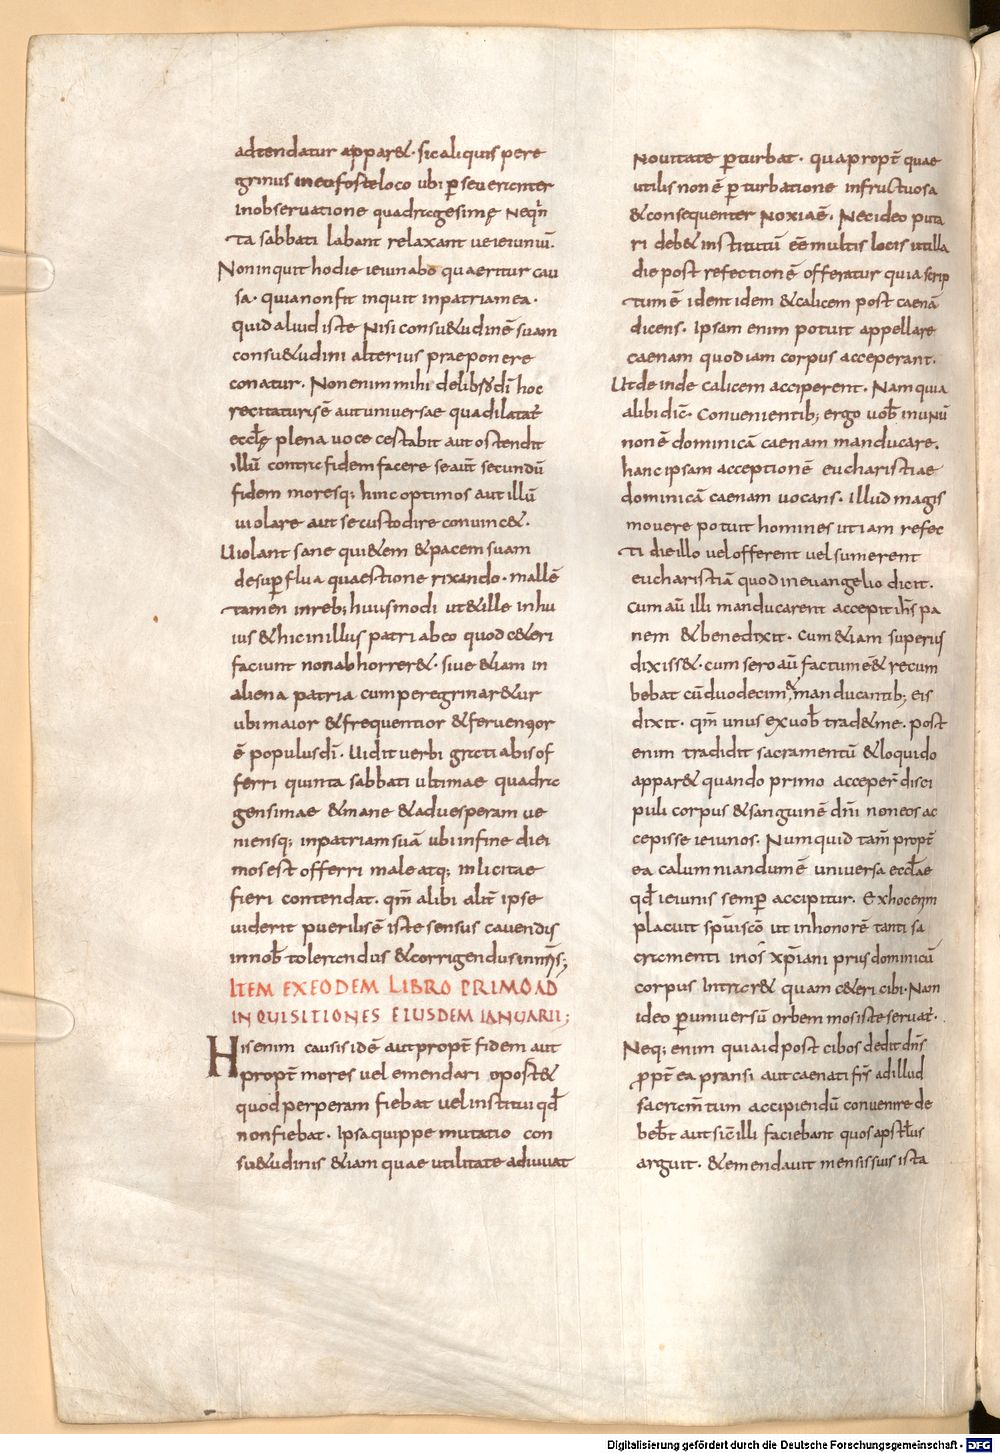 adtendatur appar&. sic aliquis pere
grinus in eo foste loco ubi p̄ seuerenter
in observatione quadragesimę neq̄ in
ta sabbati labant relaxant ue ieiuniū.
Non inquit hodie ieiunabo quaeritur cau
sa. quia non fit inquit in patria mea.
quid aliud iste nisi consu&udinē suam
consu&udini alterius praeponere
conatur. Non enim mihi de lib̄s dī hoc
recitaturus ē aut universae qua dilatat̄
ecclę plena uoce cestabit aut ostendit
illū contra fidem facere se aut̄ secundū
fidem moresq; hinc optimos aut illū
uiolare aut se custodire conuinc&.
Uiolant sane qui&em & pacem suam
de sup̄flua quaestione rixando. mallē
tamen in reb; huiusmodi ut & ille in hu
ius & hic in illius patria ab eo quod c&eri
faciunt non abhorrer&. siue &iam in
aliena patria cum peregrinar&ur
ubi maior & frequentior & feruentior
ē populus dī. Uidit uerbi gratia bis of
ferri quinta sabbati ultimae quadra
gensimae & mane & ad uesperam ue
niensq; in patriam suā ubi in fine diei
mos est offerri male atq; inlicitae
fieri contendat. qm̄ alibi alit̄ ipse
uiderit puerilis ē iste sensus cauendis
in nob̄ tolerandus & corrigendus in nr̄īs;
ITEM EX EODEM LIBRO PRIMO AD
INQUISITIONES EIUSDEM IANUARII;
His enim causis id ē aut propt̄ fidem aut
propt̄ mores uel emendari oport&
quod perperam fiebat uel institui qd̄
non fiebat. Ipsa quippe mutatio con
su&udinis &iam quae utilitate adiuuat
nouitate p̄turbat. quapropt̄ quae
utilis non ē p̄turbatione infructuosa
& consequenter noxia ē. Nec ideo puta
ri deb& institutū eē multis locis ut illa
die post refectionē offeratur quia scrip
tum ē identidem & calicem post caenā
dicens. Ipsam enim potuit appellare
caenam quod iam corpus acceperant.
Ut deinde calicem acciperent. Nam quia
alibi dic̄. Convenientib; ergo uob̄ in unū
non ē dominicā caenam manducare.
hanc ipsam acceptionē eucharistiae
dominicā caenam uocans. Illud magis
mouere potuit homines ut iam refec
ti die illo uel offerent uel sumerent
eucharistiā quod in euangelio dicit.
cum aū illi manducarent accepit ih̄s pa
nem & benedixit. cum &iam superius
dixiss&. cum sero aū factum ē& recum
bebat cū duodecim & manducantib; eis
dixit. qm̄ unus ex uob̄ trad& me. post
enim tradidit sacramentū & loquido
appar& quando primo acceper̄ disci
puli corpus & sanguinē dn̄i non eos ac
cepisse ieiunos. Numquid tam̄ propt̄
ea calumniandum ē universa ecclae
qd̄ ieiunis semp̄ accipitur. Ex hoc enim
placuit sp̄ui scō ut in honorē tanti sa
cramenti in os xp̄iani prius dominicū
corpus intrar& quam c&eri cibi. Nam
ideo p̄ uniuersū orbem mos iste seruat̄.
Neq; enim quia id post cibos dedit dn̄s
ꝓpt̄ ea pransi aut caenati fr̄s ad illud
sacram̄tum accipiendū convenire de
beb̄t aut sic̄ illi faciebant quos apstl̄us
arguit. & emendauit mensis suis ista
Digitalisierung gefördert durch die Deutsche Forschungsgemeinschaft - DFG